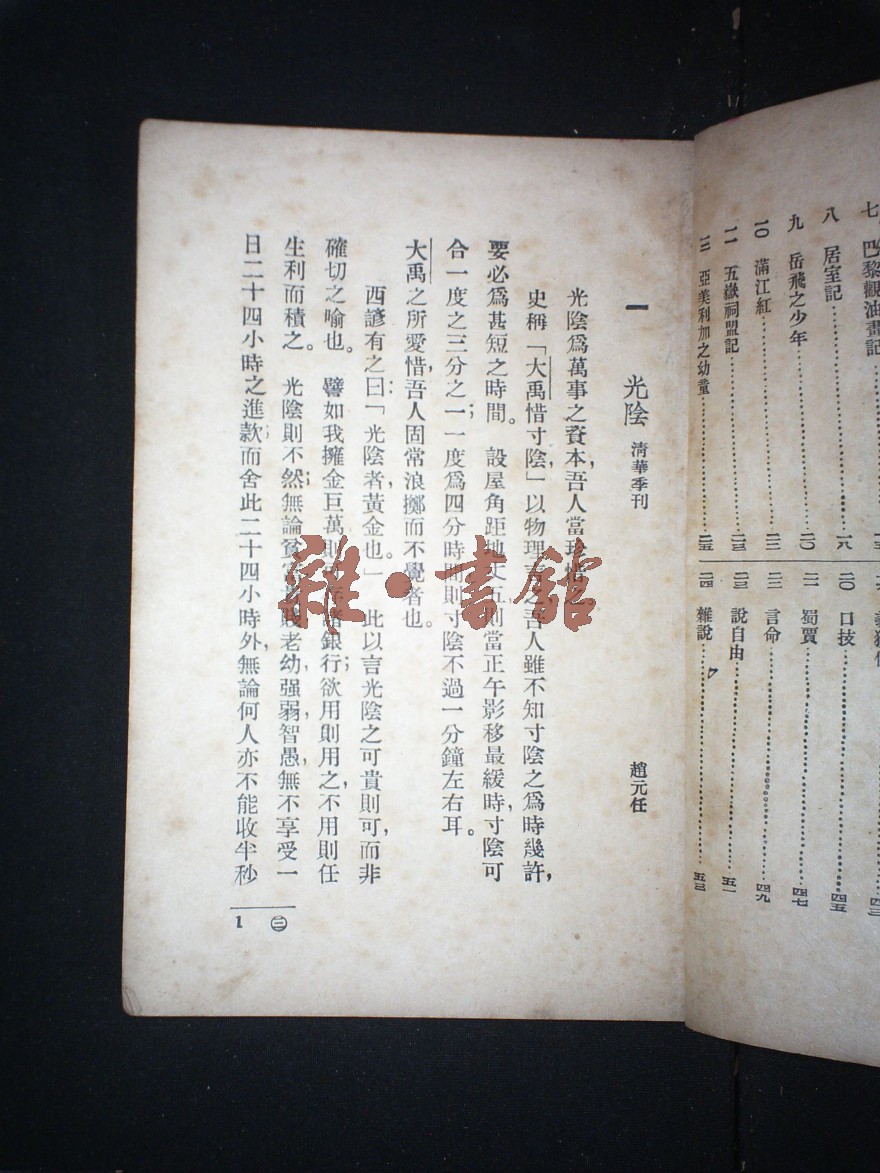 七 巴黎觀油畫記
八 居室記……一八
九 岳飛之少年……二〇
一〇 滿江紅……二二
一一 五嶽祠盟記……二三
一二 亞美利加之幼童……二五
二〇 口技……四五
二一 蜀賈……四七
二二 言命……四九
二三 說自由……五一
二四 雜說……五三
一 光陰 清華季刊 趙元任
光陰爲萬事之資本,吾人當珍惜之。
史稱「大禹惜寸陰」以物理言之,吾人雖不知寸陰之爲時幾許,
要必爲甚短之時間。設屋角距地丈五,則當正午影移最緩時,寸陰可
合一度之三分之一;一度爲四分時間,則寸陰不過一分鐘左右耳。
大禹之所愛惜,吾人固常浪擲而不覺者也。
西諺有之曰:「光陰者,黃金也。」此以言光陰之可貴則可,而非
確切之喻也。譬如我擁金巨萬,則可存諸銀行;欲用則用之,不用則任
生利而積之。光陰則不然;無論貧富貴賤老幼,强弱智愚,無不享受一
日二十四小時之進款;而舍此二十四小時外,無論何人亦不能收半秒
㊁
1
雜·書館